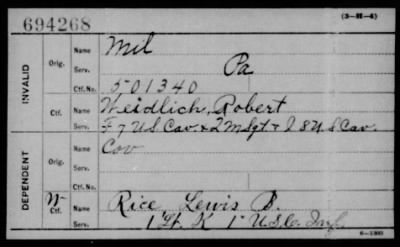 694268
(3—H—4)
INVALID
Orig.
Name
Mil
Serv.
Pa
Ctf. No.
501340
Ctf.
Name
Weidlich, Robert
Serv.
F 7 U S Cav. & 2 M Sgt + I 8 U S Cav.
DEPENDENT
Orig.
Name
Cov
Serv.
Ctf. No.
W
Ctf.
Name
Rice, Lewis B.
Serv.
1 Lt. K 1" U S C. Inf.
6—1380